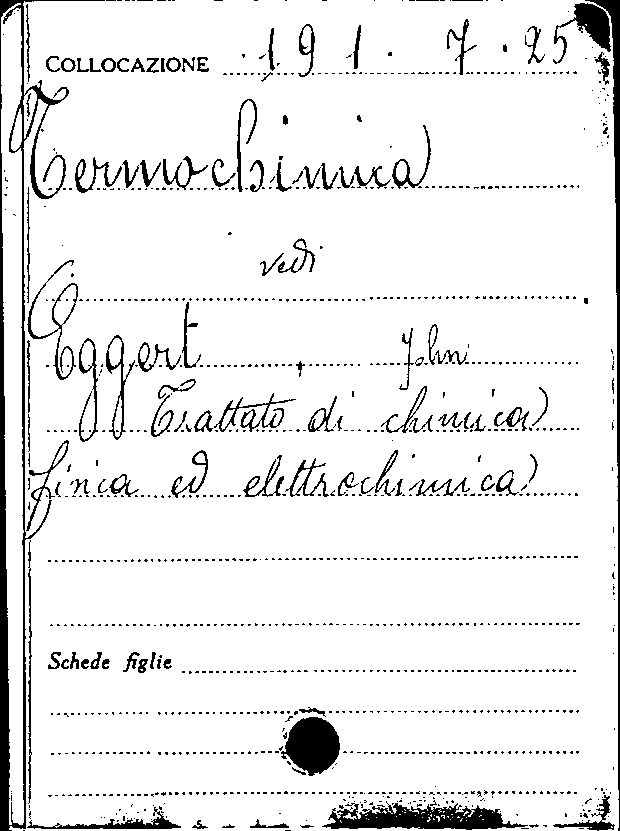 COLLOCAZIONE .191.7.25
Termochimica
vedi
Eggert, John
Trattato di chimica
fisica ed elettrochimica
Schede figlie